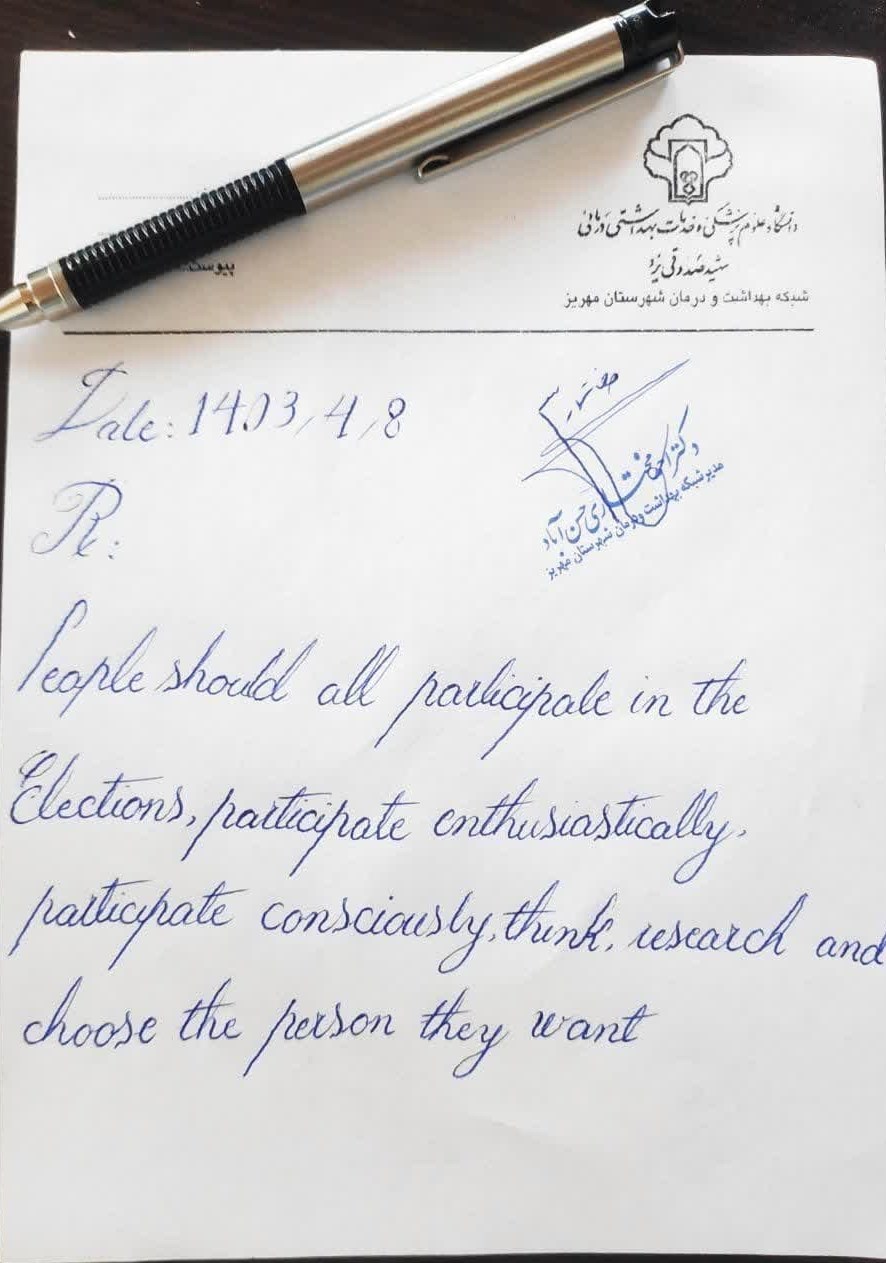 دانشگاه علوم پزشکی و خدمات بهداشتی درمانی
شهید صدوقی یزد
شبکه بهداشت و درمان شهرستان مهریز
پیوست
Date: 1403/4/8
دکتر
حسن آباد
مدیر شبکه بهداشت و درمان شهرستان مهریز
R:
People should all participate in the
Elections, participate enthusiastically,
participate consciously, think, research and
choose the person they want